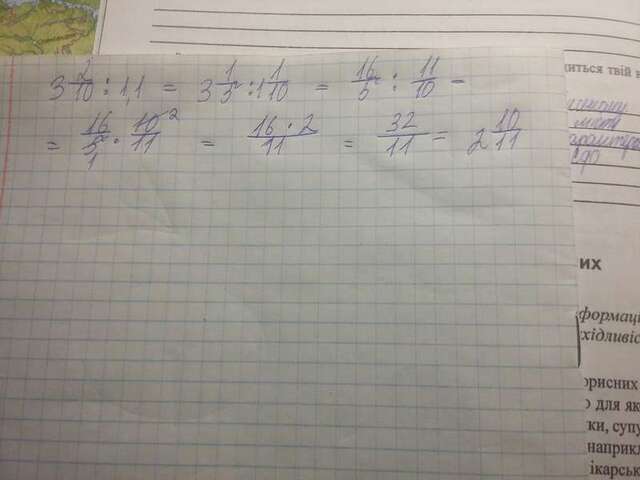 3 2/10 : 1,1 = 3 1/5 : 1 1/10 = 16/5 : 11/10 =
= 16/5 1 · 10 2/11 = 16 · 2/11 = 32/11 = 2 10/11
диться твій
их
формаці
хідливіс
орисних
о для як
тки, супу
наприкл
ікарськ